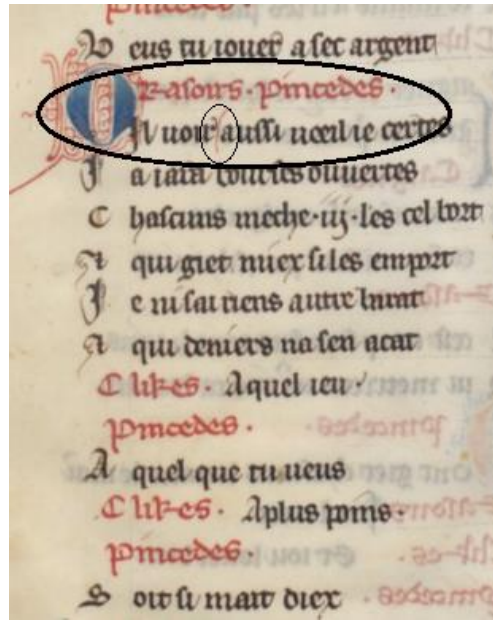 pincedes.
V eus tu iouer a sec argent
Rasoirs. pincedes.
O il uoir aussi uoeil ie certes
J a iara bourses ouuertes
C hascuns meche .iij. les cel bort
A qui giet miex si les emport
J e ni sai riens autre barat
A qui deniers na sen acat
Clikes. A quel ieu.
pincedes.
A quel que tu ueus
Clikes. A plus poins.
pincedes.
S oit si mait diex